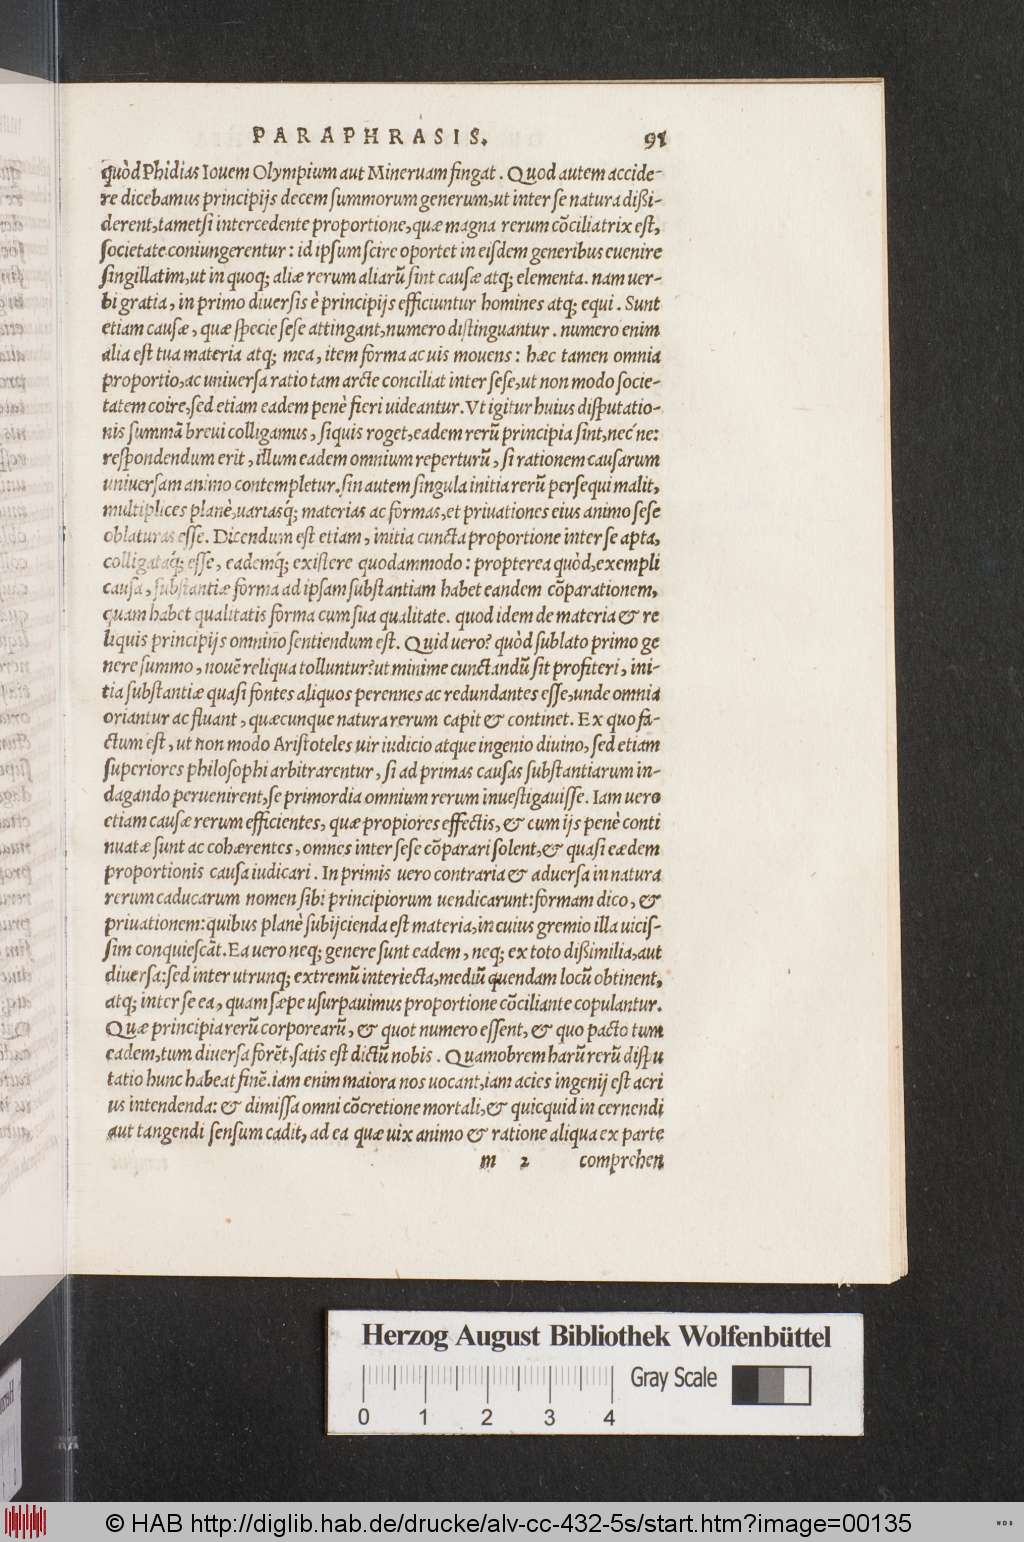 PARAPHRASIS. 91
quòd Phidias Iouem Olympium aut Mineruam fingat. Quod autem accide-
re dicebamus principijs decem summorum generum, ut inter se natura dißi-
derent, tametsi intercedente proportione, quæ magna rerum cõciliatrix est,
societate coniungerentur: id ipsum scire oportet in eisdem generibus euenire
singillatim, ut in quoq; aliæ rerum aliarũ sint causæ atq; elementa. nam uer-
bi gratia, in primo diuersis è principijs efficiuntur homines atq; equi. Sunt
etiam causæ, quæ specie sese attingant, numero distinguantur. numero enim
alia est tua materia atq; mea, item forma ac uis mouens: hæc tamen omnia
proportio, ac uniuersa ratio tam arcte conciliat inter sese, ut non modo socie-
tatem coire, sed etiam eadem penè fieri uideantur. Vt igitur huius disputatio-
nis summã breui colligamus, siquis roget, eadem rerũ principia sint, nec´ne:
respondendum erit, illum eadem omnium reperturũ, si rationem causarum
uniuersam animo contempletur. sin autem singula initia rerũ persequi malit,
multiplices planè, uariasq́; materias ac formas, et priuationes eius animo sese
oblaturas esse. Dicendum est etiam, initia cuncta proportione inter se apta,
colligataq́; esse, eademq́; existere quodammodo: propterea quòd, exempli
causa, substantiæ forma ad ipsam substantiam habet eandem cõparationem,
quam habet qualitatis forma cum sua qualitate. quod idem de materia & re
liquis principijs omnino sentiendum est. Quid uero? quòd sublato primo ge
nere summo, nouẽ reliqua tolluntur? ut minime cunctandũ sit profiteri, ini-
tia substantiæ quasi fontes aliquos perennes ac redundantes esse, unde omnia
oriantur ac fluant, quæcunque natura rerum capit & continet. Ex quo fa-
ctum est, ut non modo Aristoteles uir iudicio atque ingenio diuino, sed etiam
superiores philosophi arbitrarentur, si ad primas causas substantiarum in-
dagando peruenirent, se primordia omnium rerum inuestigauisse. Iam uero
etiam causæ rerum efficientes, quæ propiores effectis, & cum ijs penè conti
nuatæ sunt ac cohærentes, omnes inter sese cõparari solent, & quasi eædem
proportionis causa iudicari. In primis uero contraria & aduersa in natura
rerum caducarum nomen sibi principiorum uendicarunt: formam dico, &
priuationem: quibus planè subijcienda est materia, in cuius gremio illa uicis-
sim conquiescãt. Ea uero neq; genere sunt eadem, neq; ex toto dißimilia, aut
diuersa: sed inter utrunq; extremũ interiecta, mediũ quendam locũ obtinent,
atq; inter se ea, quam sæpe usurpauimus proportione cõciliante copulantur.
Quæ principia rerũ corporearũ, & quot numero essent, & quo pacto tum
eadem, tum diuersa forẽt, satis est dictũ nobis. Quamobrem harũ rerũ dispu
tatio hunc habeat finẽ. iam enim maiora nos uocant, iam acies ingenij est acri
us intendenda: & dimissa omni cõcretione mortali, & quicquid in cernendi
aut tangendi sensum cadit, ad ea quæ uix animo & ratione aliqua ex parte
m 2 comprehen
Herzog August Bibliothek Wolfenbüttel
Gray Scale
0 1 2 3 4
© HAB http://diglib.hab.de/drucke/alv-cc-432-5s/start.htm?image=00135